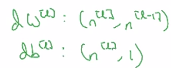 dW^[l] : (n^[l], n^[l-1])
db^[l] : (n^[l], 1)